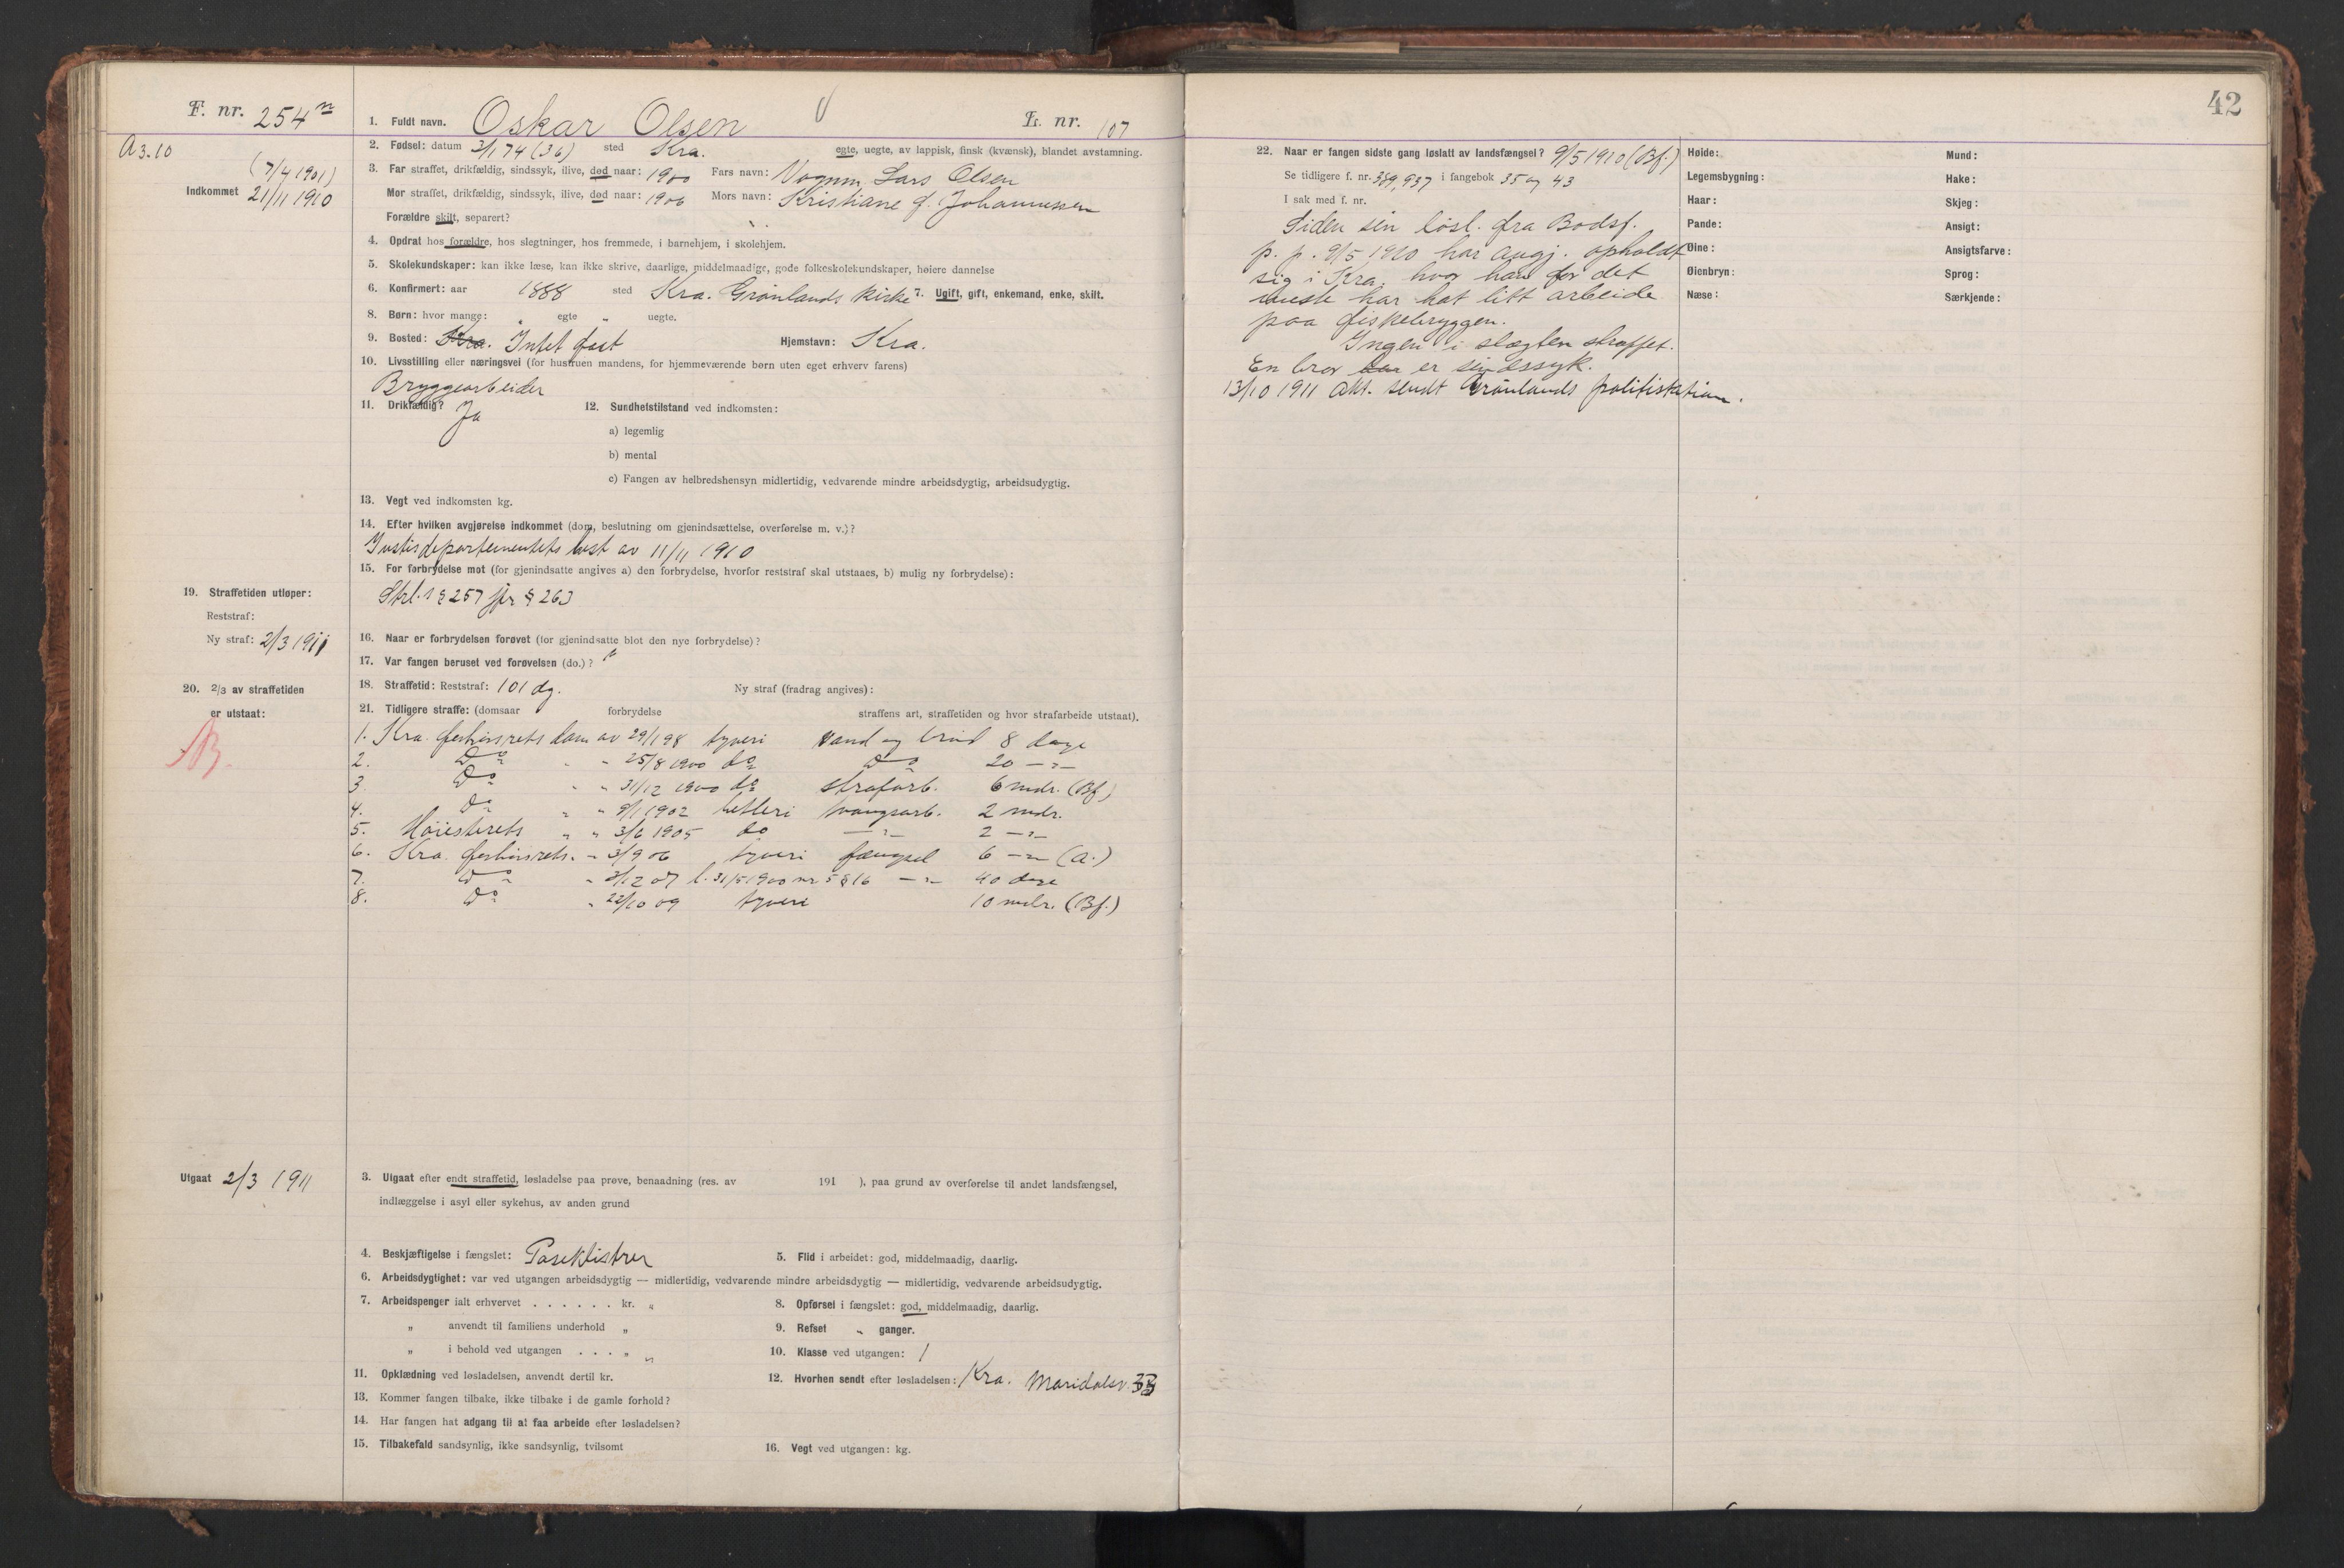 F. nr. 254
1. Fuldt navn. Oskar Olsen
L. nr. 107
A 3.10
2. Fødsel: datum 3/1 74 (36) sted Kra. egte, uegte, av lappisk, finsk (kvænsk), blandet avstamning.
(7/4 1901)
Indkommet 21/11 1910
3. Far straffet, drikfældig, sindssyk, ilive, død naar: 1900 Fars navn: Vognm. Lars Olsen
Mor straffet, drikfældig, sindssyk, ilive, død naar: 1906 Mors navn: Kristiane f. Johannessen
Forældre skilt, separert?
4. Opdrat hos forældre, hos slegtninger, hos fremmede, i barnehjem, i skolehjem.
5. Skolekundskaper: kan ikke læse, kan ikke skrive, daarlige, middelmaadige, gode folkeskolekundskaper, høiere dannelse
6. Konfirmert: aar 1888 sted Kra. Grønlands kirke 7. Ugift, gift, enkemand, enke, skilt.
8. Børn: hvor mange: " egte " uegte.
9. Bosted: Kra. Intet fast Hjemstavn: Kra.
10. Livsstilling eller næringsvei (for hustruen mandens, for hjemmeværende børn uten eget erhverv farens)
Bryggearbeider
11. Drikfældig? Ja 12. Sundhetstilstand ved indkomsten:
a) legemlig
b) mental
c) Fangen av helbredshensyn midlertidig, vedvarende mindre arbeidsdygtig, arbeidsudygtig.
13. Vegt ved indkomsten kg.
14. Efter hvilken avgjørelse indkommet (dom, beslutning om gjenindsættelse, overførelse m. v.)?
Justisdepartementets best av 11/11 1910
15. For forbrydelse mot (for gjenindsatte angives a) den forbrydelse, hvorfor reststraf skal utstaaes, b) mulig ny forbrydelse):
Strl. § 257 jfr § 263
19. Straffetiden utløper:
Reststraf:
Ny straf: 2/3 1911
16. Naar er forbrydelsen forøvet (for gjenindsatte blot den nye forbrydelse)?
17. Var fangen beruset ved forøvelsen (do.)?
20. 2/3 av straffetiden
er utstaat:
18. Straffetid: Reststraf: 101 dg. Ny straf (fradrag angives):
21. Tidligere straffe: (domsaar forbrydelse straffens art, straffetiden og hvor strafarbeide utstaat).
1. Kra. forhørsrets dom av 29/1 98 tyveri vand og brød 8 dage
2. Do " " 25/8 1900 do do 20 — " —
3. Do " " 31/12 1900 do strafarb. 6 mdr. (Bf.)
4. Do " " 9/1 1902 betleri tvangsarb. 2 mdr.
5. Høiesterets " " 3/6 1905 do — " — 2 — " —
6. Kra. forhørsrets. " 3/9 06 tyveri fængsel 6 — " — (A.)
7. Do " 3/12 07 l. 31/5 1900 nr 5 § 16 — " — 40 dage
8. Do " 22/10 09 tyveri 10 mdr. (Bf.)
Utgaat 2/3 1911
3. Utgaat efter endt straffetid, løsladelse paa prøve, benaadning (res. av 191 ), paa grund av overførelse til andet landsfængsel,
indlæggelse i asyl eller sykehus, av anden grund
4. Beskjæftigelse i fængslet: Poseklistrer
5. Flid i arbeidet: god, middelmaadig, daarlig.
6. Arbeidsdygtighet: var ved utgangen arbeidsdygtig — midlertidig, vedvarende mindre arbeidsdygtig — midlertidig, vedvarende arbeidsudygtig.
7. Arbeidspenger ialt erhvervet . . . . . . kr. "
8. Opførsel i fængslet: god, middelmaadig, daarlig.
" anvendt til familiens underhold "
9. Refset " ganger.
" i behold ved utgangen . . . "
10. Klasse ved utgangen: 1
11. Opklædning ved løsladelsen, anvendt dertil kr.
12. Hvorhen sendt efter løsladelsen: Kra. Maridalsv. 33
13. Kommer fangen tilbake, ikke tilbake i de gamle forhold?
14. Har fangen hat adgang til at faa arbeide efter løsladelsen?
15. Tilbakefald sandsynlig, ikke sandsynlig, tvilsomt
16. Vegt ved utgangen: kg.
42
22. Naar er fangen sidste gang løslatt av landsfængsel? 9/5 1910 (Bf.)
Se tidligere f. nr. 389, 937 i fangebok 35 og 43
I sak med f. nr.
Siden sin løsl. fra Bodsf.
p. p. 9/5 1910 har angj. opholdt
sig i Kra. hvor han for det
meste har hat litt arbeide
paa fiskebryggen.
Ingen i slægten straffet.
En bror er sindssyk.
13/10 1911 Akt. sendt Grønlands politistation.
Høide:
Legemsbygning:
Haar:
Pande:
Øine:
Øienbryn:
Næse:
Mund:
Hake:
Skjeg:
Ansigt:
Ansigtsfarve:
Sprog:
Særkjende: